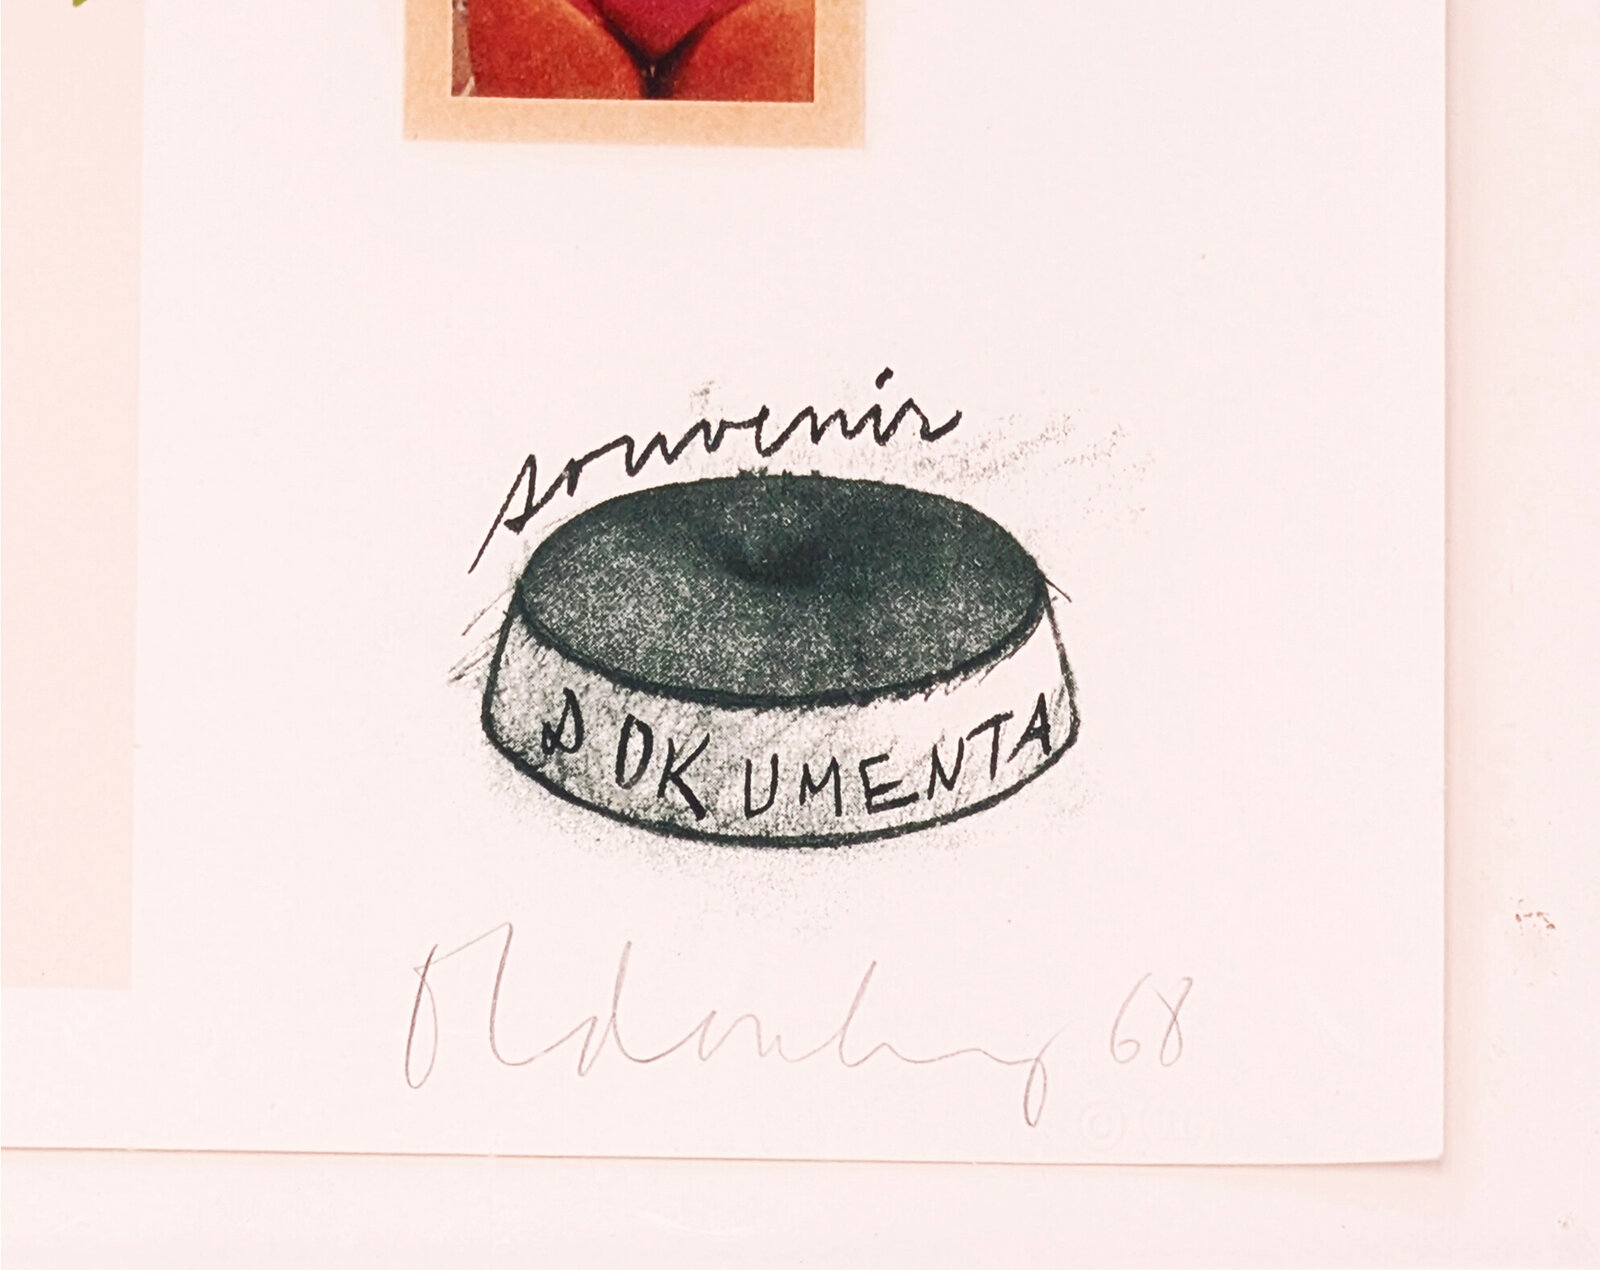 souvenir
DOKUMENTA
Oldenburg 68